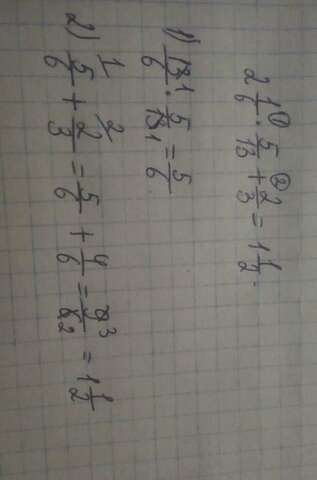 2 1/6 ① · 5/13 + ② 2/3 = 1 1/2.
1) 13 1/6 · 5/13 1 = 5/6
2) 5/6 1 + 2/3 2 = 5/6 + 4/6 = 9 3/6 2 = 1 1/2